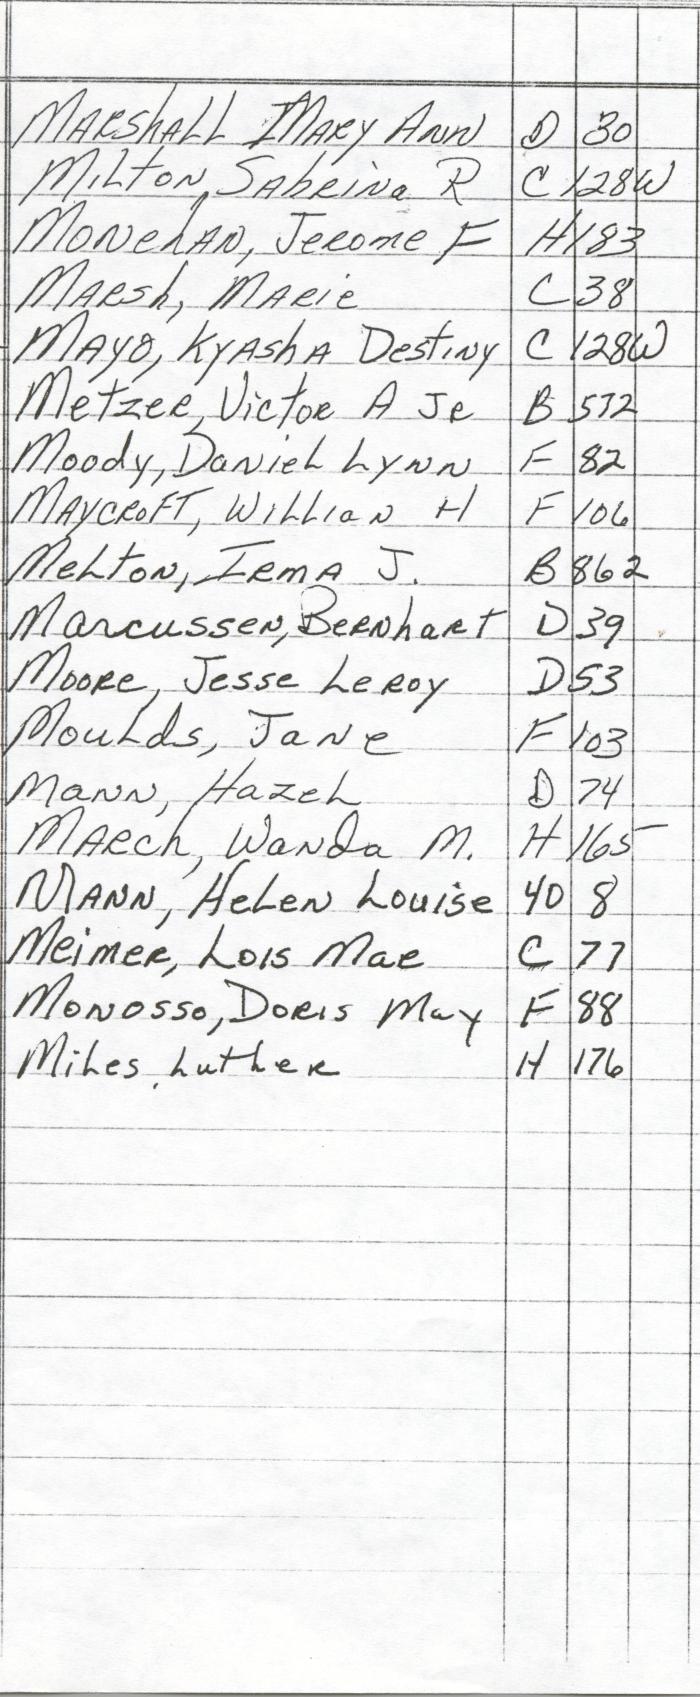 MARSHALL MARY ANN D 30
MILTON, SAbRINa R C 128W
MONEhAN, JEROME F H 183
MARSh, MARIE C 38
MAYO, KYASHA DESTINY C 128W
METZER, VICTOR A JR B 572
Moody, DaNIEL LYNN F 82
MAYCROFT, WILLIaN H F 106
MELTON, IRMA J. B 862
MARCUSSEN, BERNhART D 39
MOORE, JESSE LEROY D 53
MOULDS, JANE F 103
MANN, HAZEL D 74
MARCh, WaNDa M. H 165
MANN, HELEN LOUISE 40 8
MEIMER, LOIS MAE C 77
MONOSSO, DORIS MAY F 88
MILES, LUTHER H 176